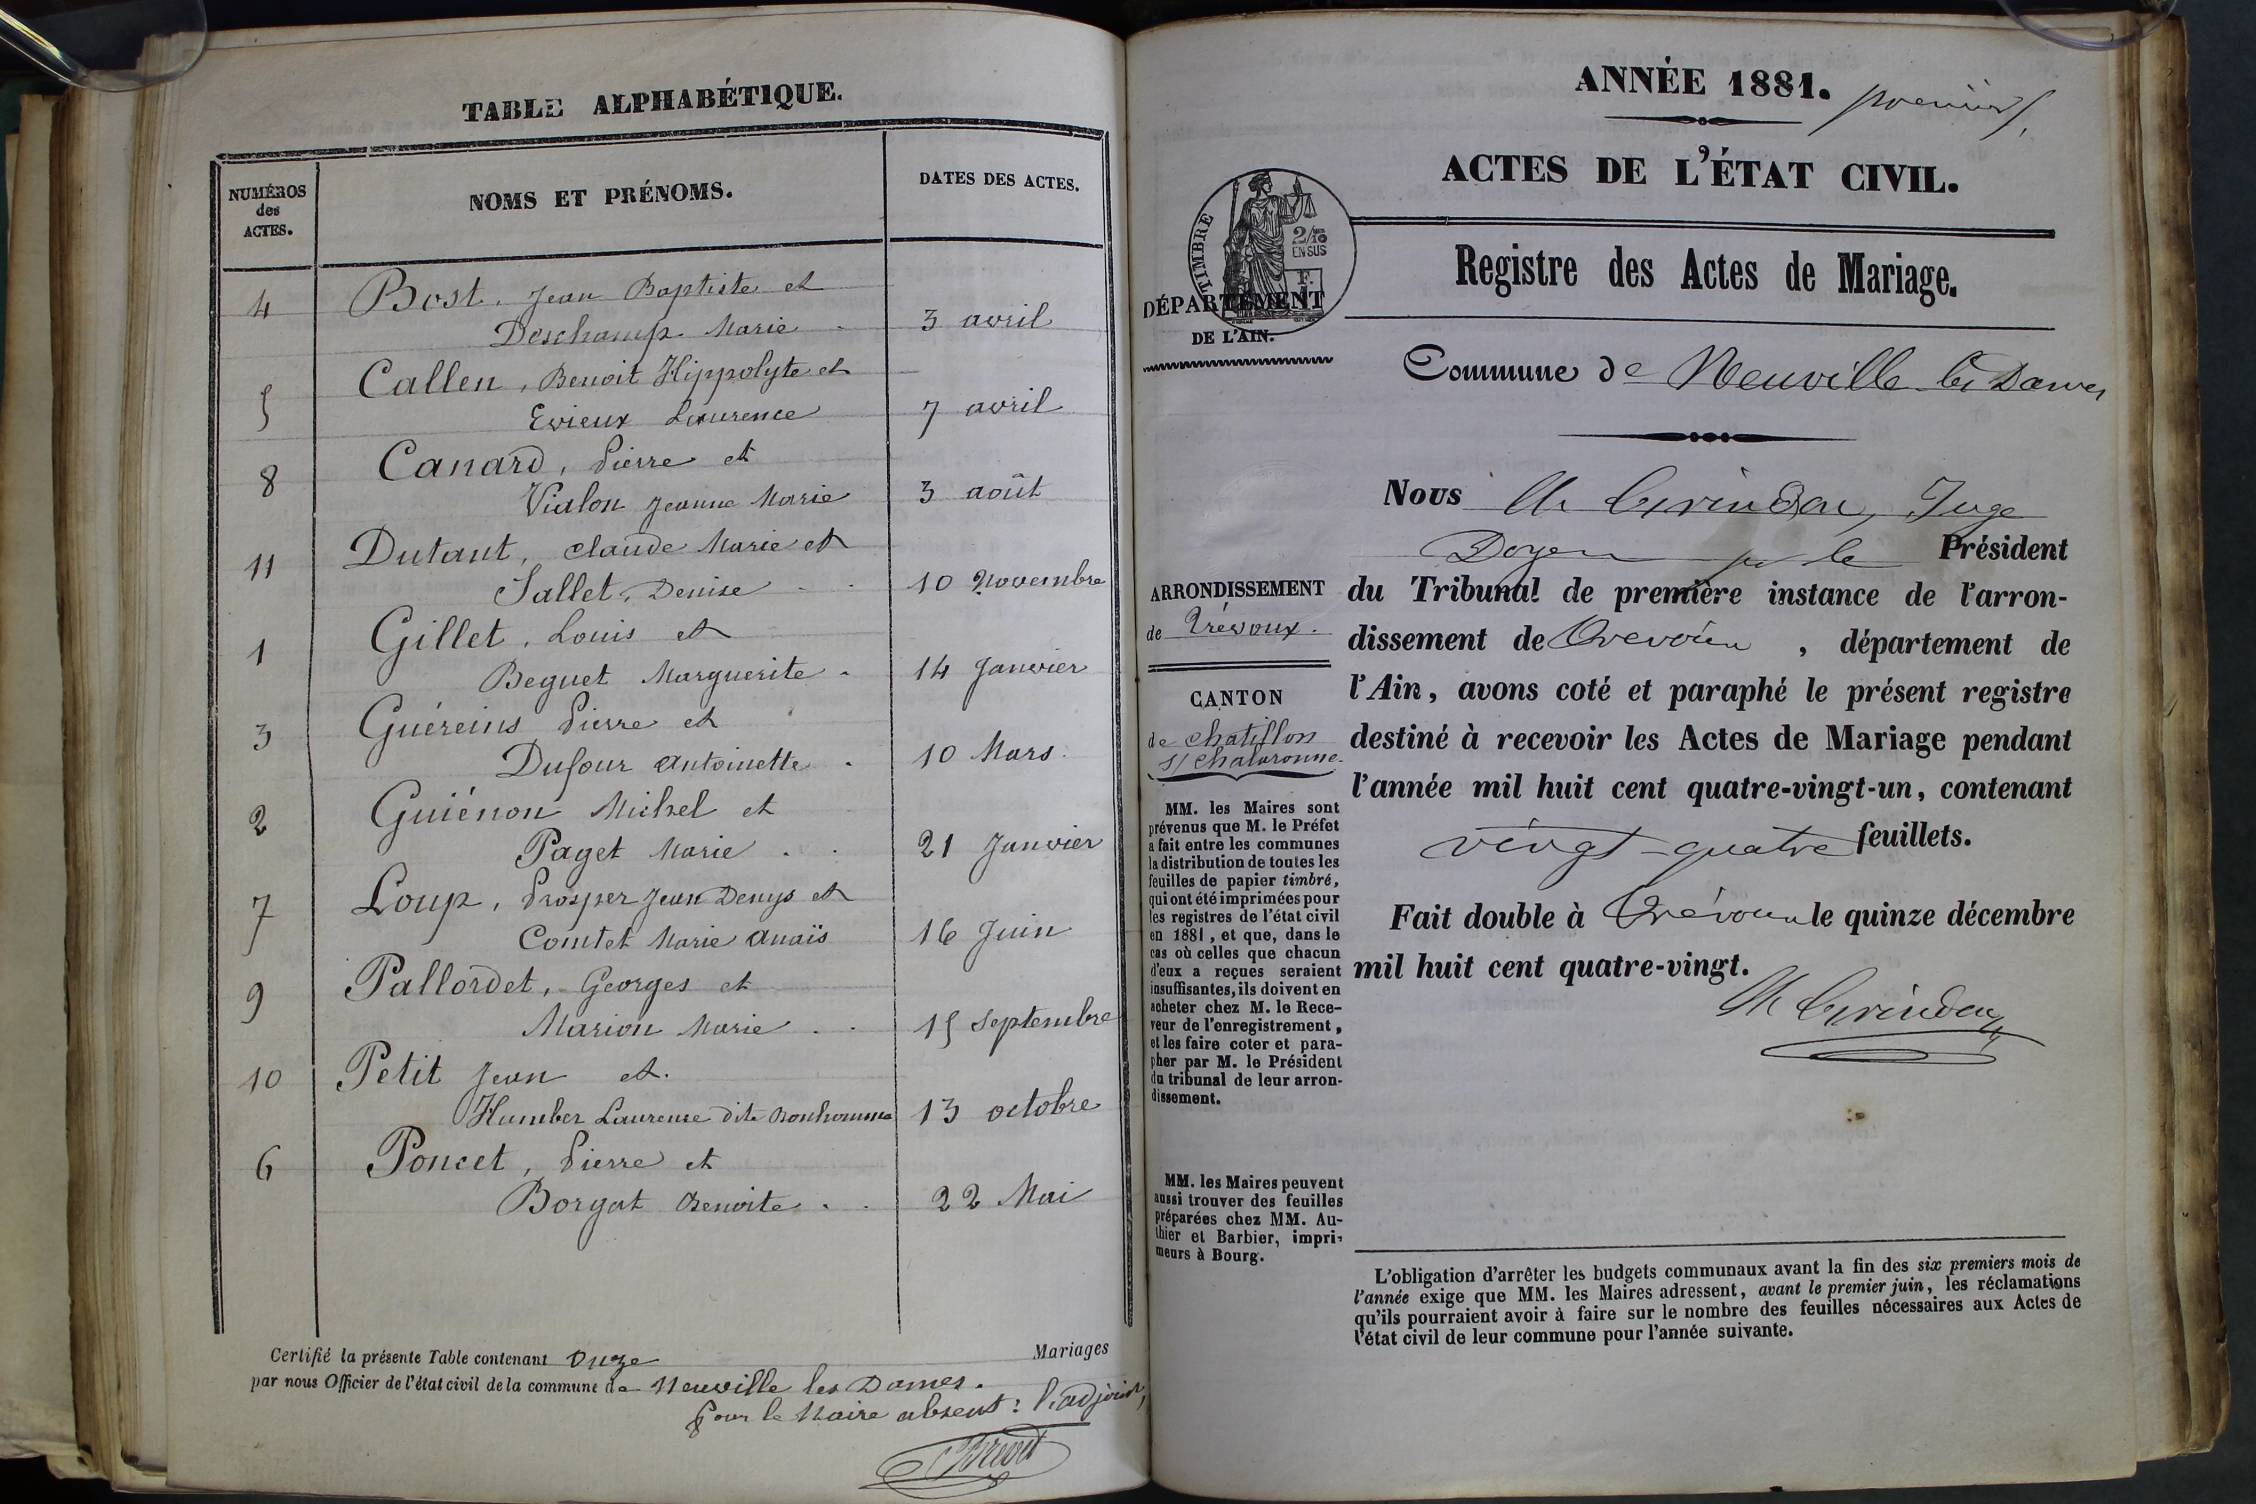 TABLE ALPHABÉTIQUE.
NUMÉROS
des
ACTES.
NOMS ET PRÉNOMS.
DATES DES ACTES.
4 Bost, Jean Baptiste et
Deschamp Marie 3 avril
5 Callen, Benoit Hippolyte et
Evieux Laurence 7 avril
8 Canard, Pierre et
Vialon Jeanne Marie 3 août
11 Dutant, Claude Marie et
Sallet, Denise 10 Novembre
1 Gillet, Louis et
Beguet Marguerite 14 Janvier
3 Guéreins Pierre et
Dufour Antoinette 10 Mars
2 Guiénon Michel et
Paget Marie 21 Janvier
7 Loup, Prosper Jean Denys et
Comtet Marie Anaïs 16 Juin
9 Pallordet, Georges et
Marion Marie 15 Septembre
10 Petit Jean et
Humber Laurence dite Bonhomme 13 octobre
6 Poncet, Pierre et
Borgat Benoite 22 Mai
Certifié la présente Table contenant Onze Mariages
par nous Officier de l'état civil de la commune de Neuville les Dames.
Pour le Maire absent : l'adjoint,
ANNÉE 1881.
ACTES DE L'ÉTAT CIVIL.
TIMBRE
2/10
EN SUS
F.
Registre des Actes de Mariage.
DÉPARTEMENT
DE L'AIN.
Commune de Neuville les Dames
Nous Juge
Doyen pr le Président
du Tribunal de première instance de l'arron-
dissement de Trévoux, département de
l'Ain, avons coté et paraphé le présent registre
destiné à recevoir les Actes de Mariage pendant
l'année mil huit cent quatre-vingt-un, contenant
vingt-quatre feuillets.
Fait double à Trévoux le quinze décembre
mil huit cent quatre-vingt.
ARRONDISSEMENT
de Trévoux.
CANTON
de Chatillon
s/ Chalaronne.
MM. les Maires sont
prévenus que M. le Préfet
a fait entre les communes
la distribution de toutes les
feuilles de papier timbré,
qui ont été imprimées pour
les registres de l'état civil
en 1881, et que, dans le
cas où celles que chacun
d'eux a reçues seraient
insuffisantes, ils doivent en
acheter chez M. le Rece-
veur de l'enregistrement,
et les faire coter et para-
pher par M. le Président
du tribunal de leur arron-
dissement.
MM. les Maires peuvent
aussi trouver des feuilles
préparées chez MM. Au-
thier et Barbier, impri-
meurs à Bourg.
L'obligation d'arrêter les budgets communaux avant la fin des six premiers mois de
l'année exige que MM. les Maires adressent, avant le premier juin, les réclamations
qu'ils pourraient avoir à faire sur le nombre des feuilles nécessaires aux Actes de
l'état civil de leur commune pour l'année suivante.